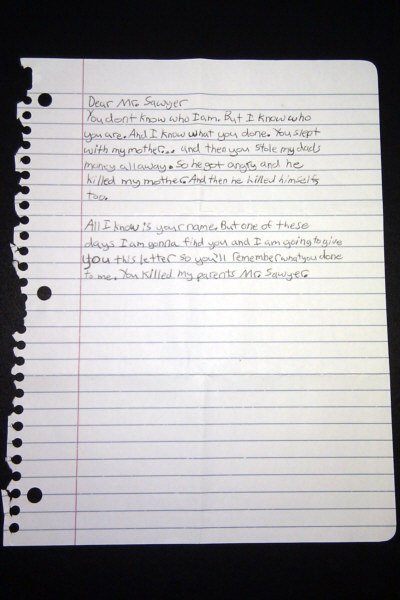 Dear Mr. Sawyer
You dont know who I am. But I know who
you are. And I know what you done. You slept
with my mother.. and then you stole my dads
money all away. So he got angry and he
killed my mother. And then he killed himself
too.
All I know is your name. But one of these
days I am gonna find you and I am going to give
you this letter so you'll remember what you done
to me. You killed my parents Mr. Sawyer.